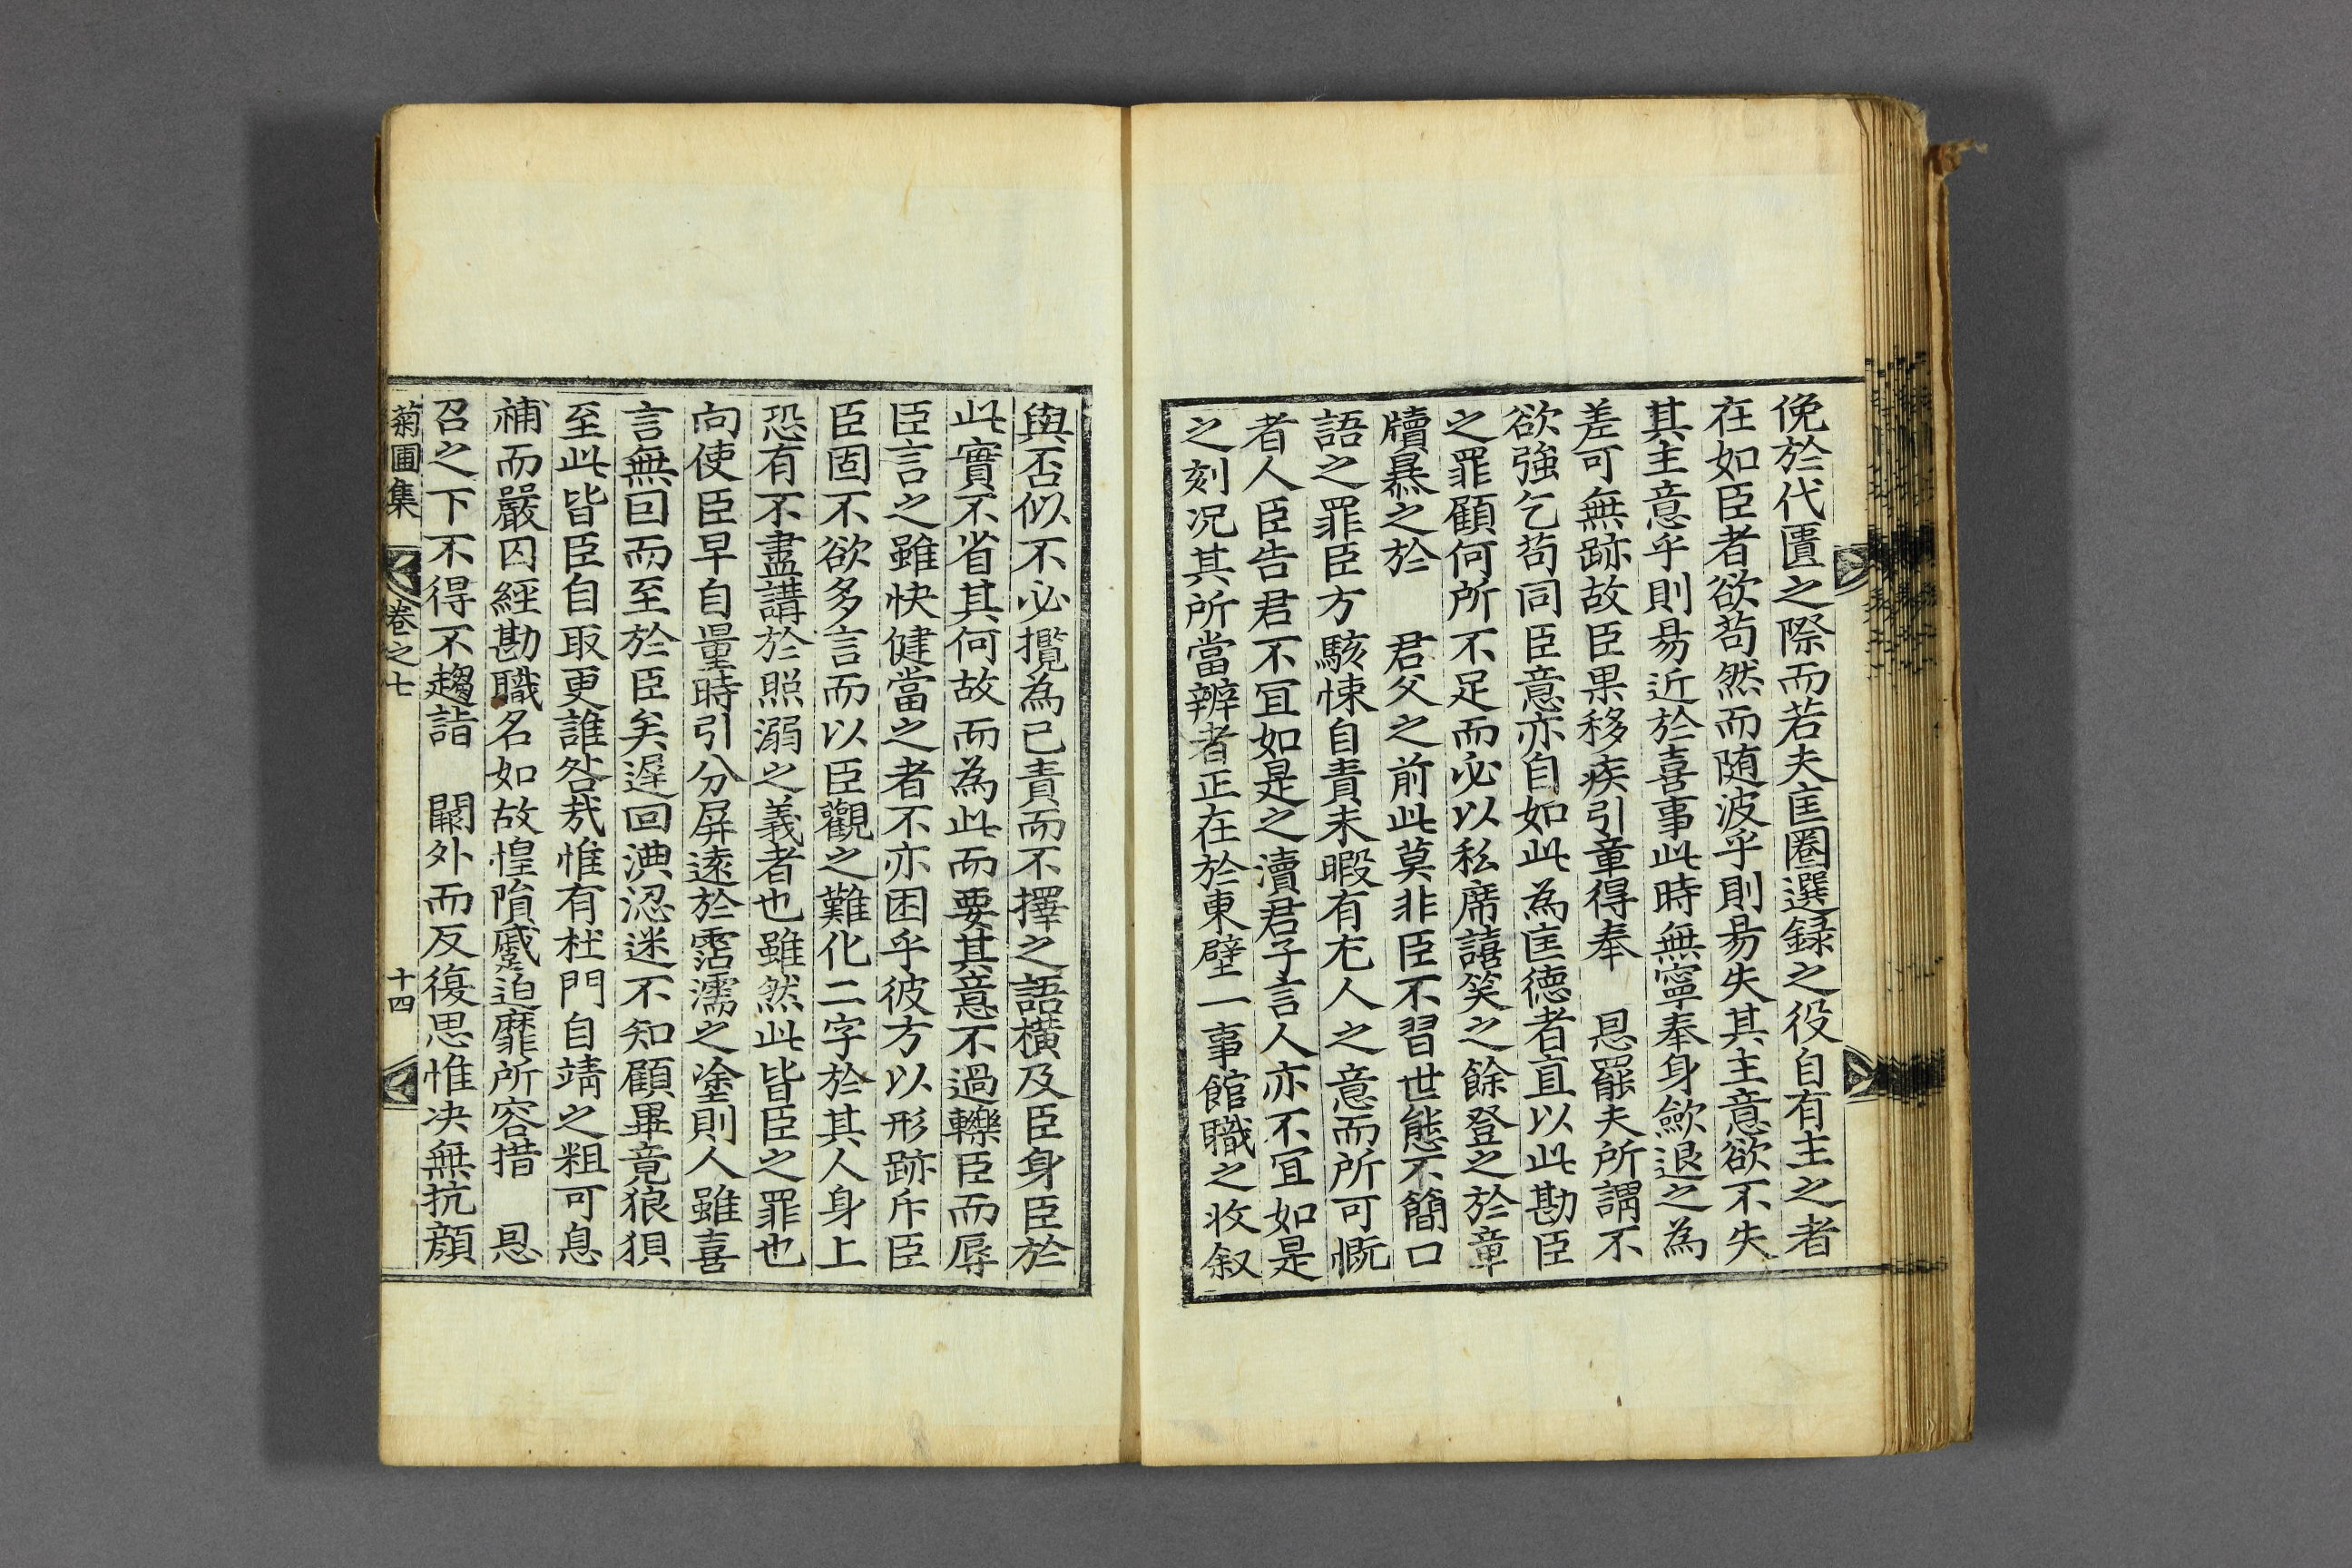 俛於代匱之際而若夫匡圈選録之役自有主之者
在如臣者欲苟然而随波乎則易失其主意欲不失
其主意乎則易近於喜事此時無寧奉身歛退之為
差可無跡故臣果移疾引章得奉 恩罷夫所謂不
欲強乞苟同臣意亦自如此為匡德者亘以此勘臣
之罪顧何所不足而必以私席譆笑之餘登之於章
牘暴之於 君父之前此莫非臣不習世態不簡口
語之罪臣方駭悚自責未暇有尤人之意而所可慨
者人臣告君不冝如是之瀆君子言人亦不冝如是
之刻况其所當辨者正在於東壁一事館職之收叙
與否似不必攬為已責而不擇之語橫及臣身臣於
此實不省其何故而為此而要其意不過轢臣而辱
臣言之雖快健當之者不亦困乎彼方以形跡斥臣
臣固不欲多言而以臣觀之難化二字於其人身上
恐有不盡講於照溺之義者也雖然此皆臣之罪也
向使臣早自量時引分屏遠於霑濡之塗則人雖喜
言無回而至於臣矣遅回淟涊迷不知顧畢竟狼狽
至此皆臣自取更誰咎㦲惟有杜門自靖之粗可息
補而嚴囚經勘職名如故惶隕蹙迫靡所容措 恩
召之下不得不趨詣 闕外而反復思惟决無抗顔
菊圃集 卷之七 十四